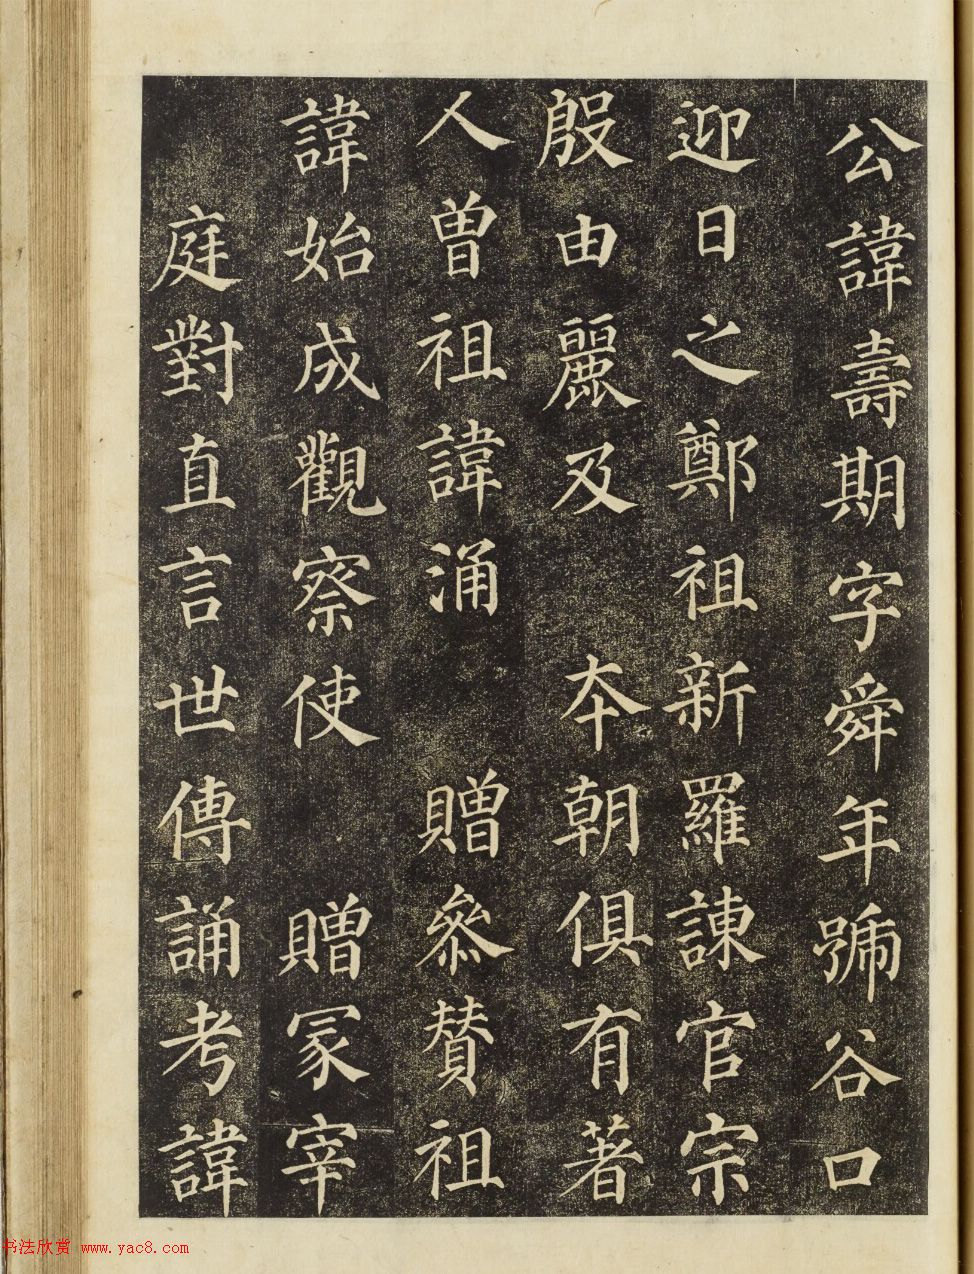 公諱壽期字舜年號谷口
迎日之鄭祖新羅諫官宗
殷由麗及 本朝俱有著
人曾祖諱涌 贈參贊祖
諱始成觀察使 贈冢宰
庭對直言世傳誦考諱
书法欣赏 www.yac8.com